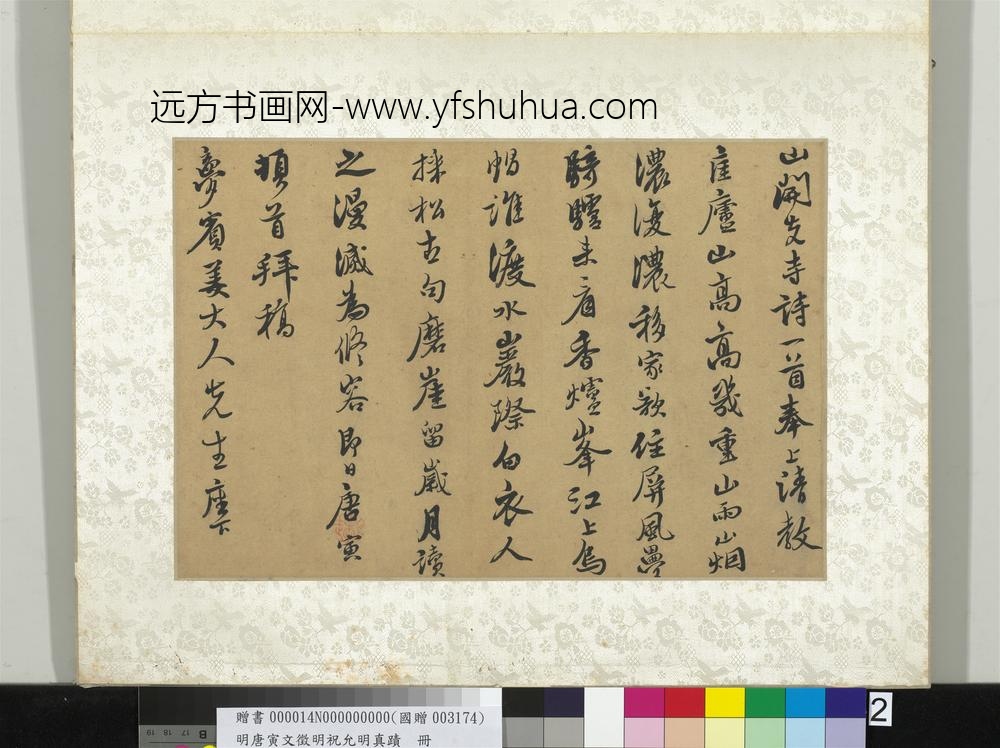 远方书画网-www.yfshuhua.com
山開先寺詩一首奉上請教
匡廬山高高幾重山雨山烟
濃復濃移家欲住屏風疊
騎驢來看香爐峯江上烏
帽誰渡水巖際白衣人
採松古句磨崖留歲月讀
之漫滅為修容即日唐寅
頓首拜稿
夢賓姜大人先生座下
2
贈書 000014N000000000(國贈 003174)
明唐寅文徵明祝允明真蹟 冊
B 17 18 19